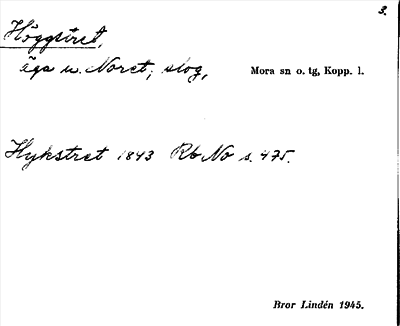 3.
Höggstret,
äga u. Noret; skog,
Mora sn o. tg, Kopp. l.
Hykstret 1843 Rb No s. 475.
Bror Lindén 1945.